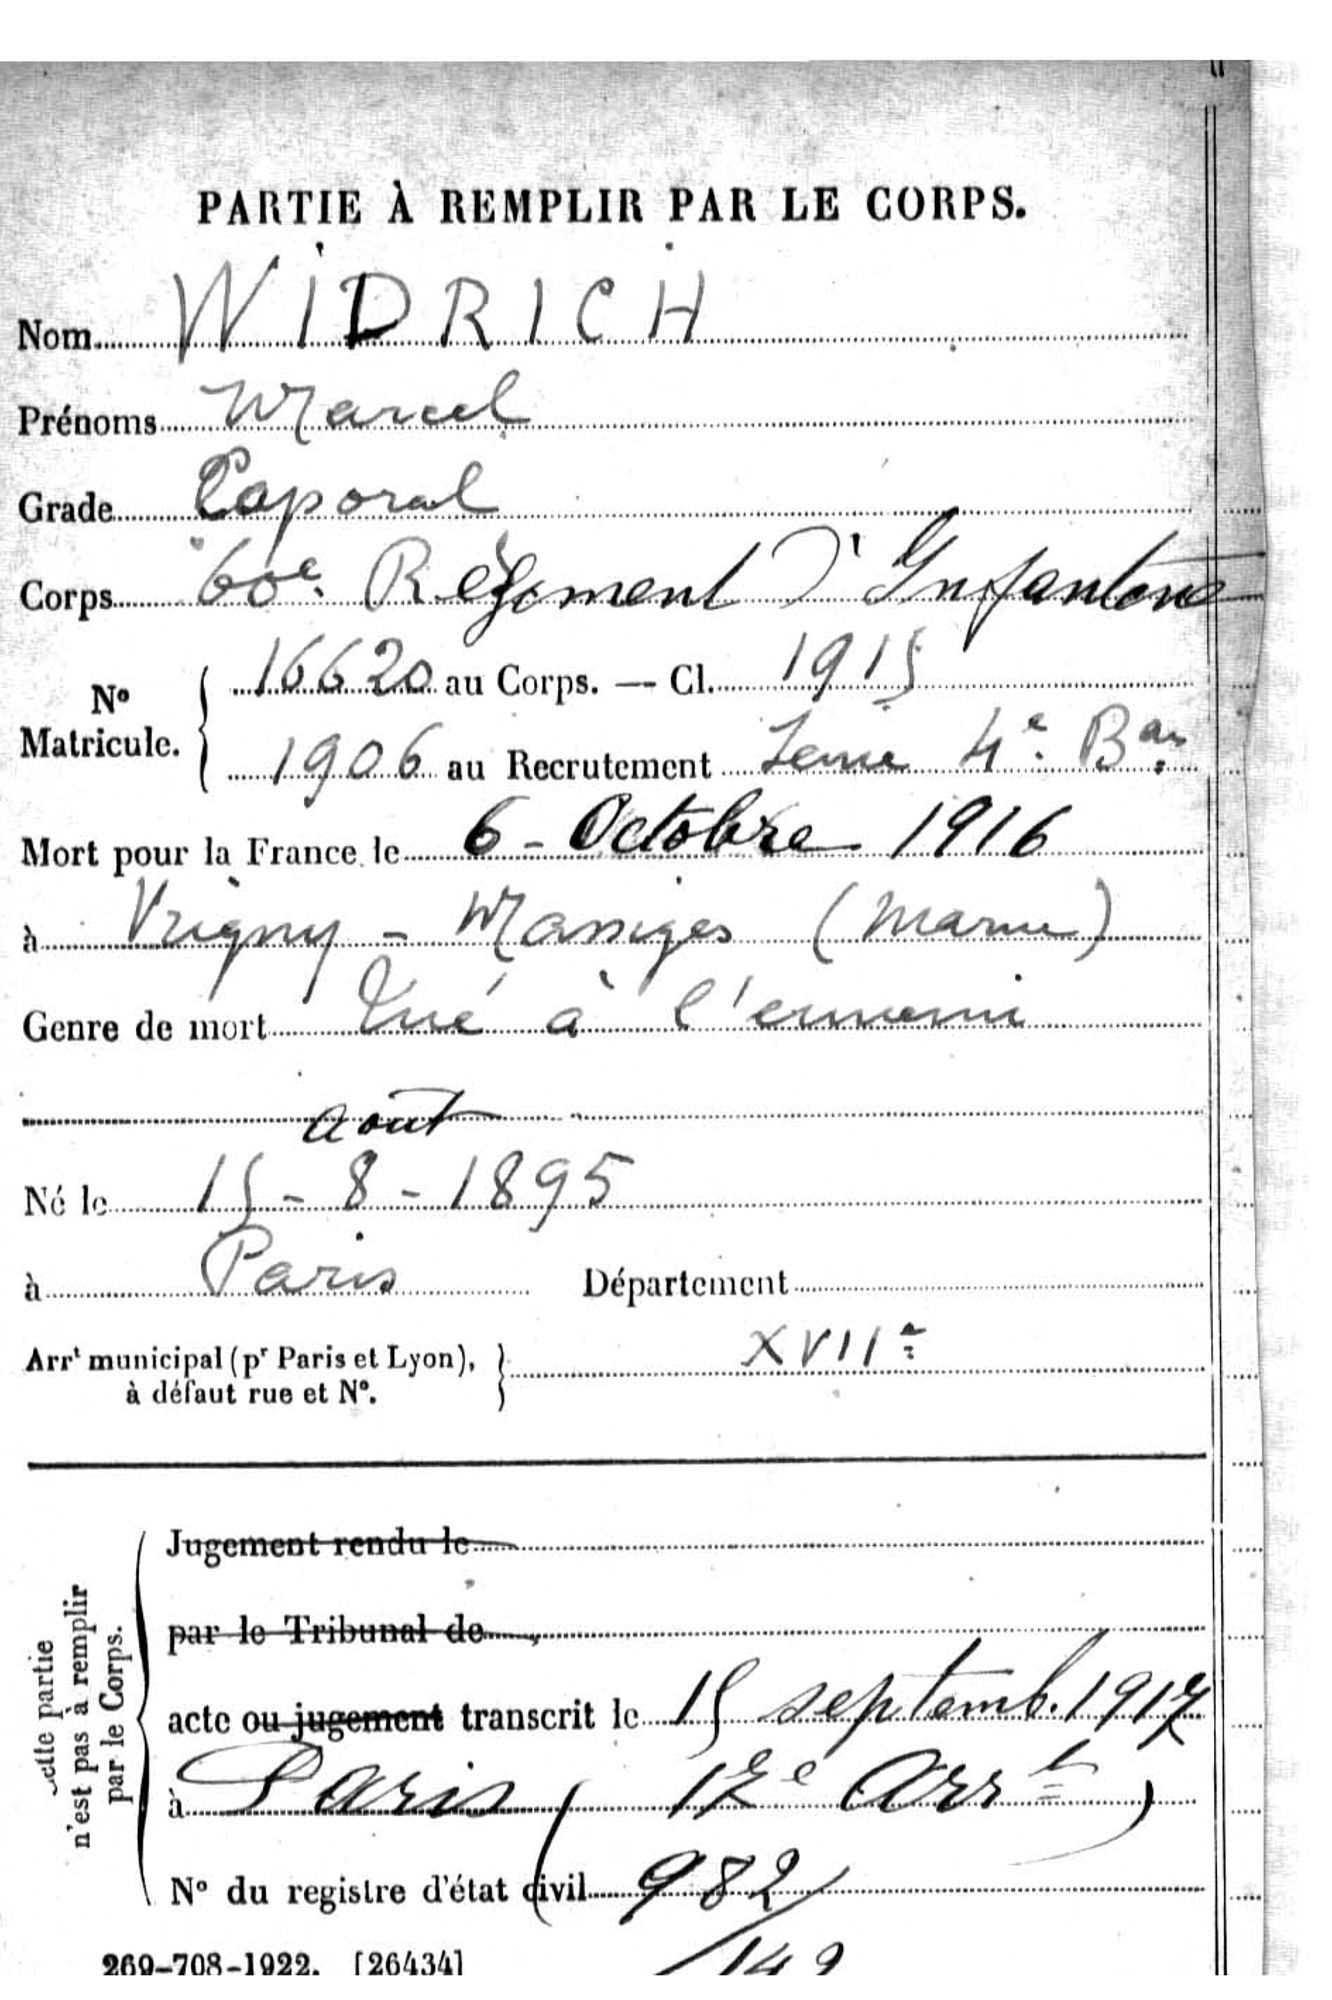 PARTIE À REMPLIR PAR LE CORPS.
Nom WIDRICH
Prénoms Marcel
Grade Caporal
Corps 60e Régiment d'Infanterie
No Matricule. 16620 au Corps. — Cl. 1915
1906 au Recrutement Seine 4e Bau
Mort pour la France le 6 - Octobre 1916
à Vrigny - Massiges (Marne)
Genre de mort Tué à l'ennemi
août
Né le 15 - 8 - 1895
à Paris Département
Arrt municipal (pr Paris et Lyon), à défaut rue et No. XVIIe
Cette partie n'est pas à remplir par le Corps.
Jugement rendu le
par le Tribunal de
acte ou jugement transcrit le 15 septemb. 1917
à Paris (17e Arrt)
No du registre d'état civil 982
149
269-708-1922. [26434]